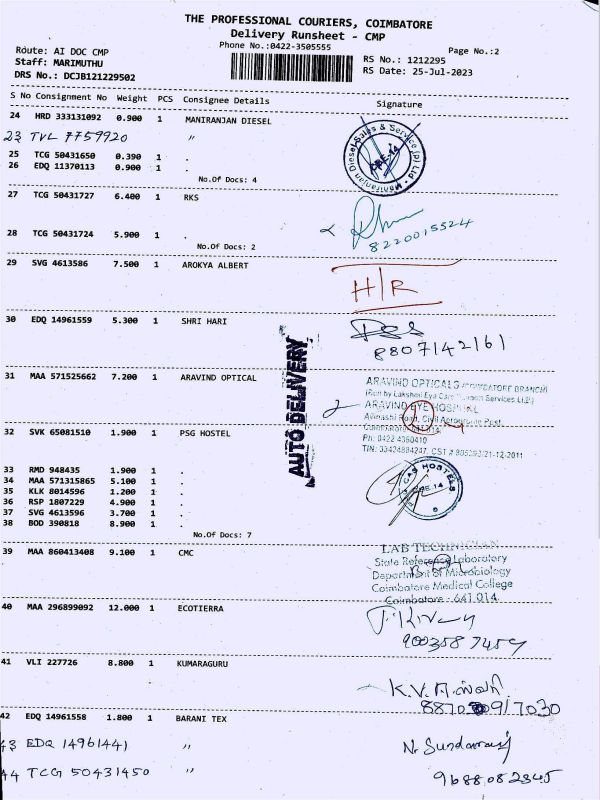 THE PROFESSIONAL COURIERS, COIMBATORE
Delivery Runsheet - CMP
Phone No.:0422-3505555
Page No.:2
Route: AI DOC CMP
Staff: MARIMUTHU
DRS No.: DCJB121229502
RS No.: 1212295
RS Date: 25-Jul-2023
S No Consignment No Weight PCS Consignee Details Signature
24 HRD 333131092 0.900 1 MANIRANJAN DIESEL
23 TVL 7759920 "
25 TCG 50431650 0.390 1 .
26 EDQ 11370113 0.900 1 .
No.Of Docs: 4
Maniranjan Diesel Sales & Service (P) Ltd
CBE-14
27 TCG 50431727 6.400 1 RKS
8220015524
28 TCG 50431724 5.900 1 .
No.Of Docs: 2
29 SVG 4613586 7.500 1 AROKYA ALBERT
H/R
30 EDQ 14961559 5.300 1 SHRI HARI
8807142161
AUTO DELIVERY
31 MAA 571525662 7.200 1 ARAVIND OPTICAL
ARAVIND OPTICALS (COIMBATORE BRANCH)
ARAVIND EYE HOSPITAL
Avinashi Road, Civil Aerodrome Post,
Coimbatore - 641 014.
PH: 0422 4360410
32 SVK 65081510 1.900 1 PSG HOSTEL
33 RMD 948435 1.900 1 .
34 MAA 571315865 5.100 1 .
35 KLK 8014596 1.200 1 .
36 RSP 1807229 4.900 1 .
37 SVG 4613596 3.700 1 .
38 BOD 390818 8.900 1 .
No.Of Docs: 7
CAS HOSTELS
39 MAA 860413408 9.100 1 CMC
LAB TECHNICIAN
State Reference Laboratory
Department of Microbiology
Coimbatore Medical College
Coimbatore - 641 014.
40 MAA 296899092 12.000 1 ECOTIERRA
9003587459
41 VLI 227726 8.800 1 KUMARAGURU
K.V.
42 EDQ 14961558 1.800 1 BARANI TEX
43 EDQ 14961441 "
44 TCG 50431450 "
9688082345